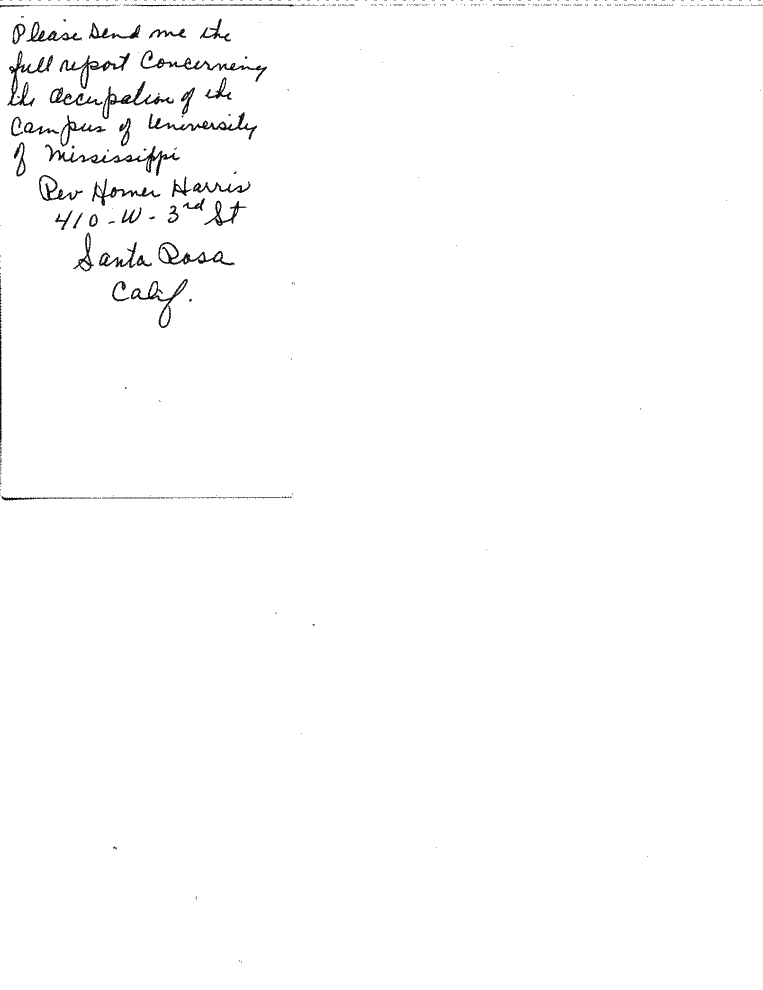 Please Send me the
full report Concerning
the Occupation of the
Campus of University
of Mississippi
Rev Homer Harris
410-W-3rd St
Santa Rosa
Calif.